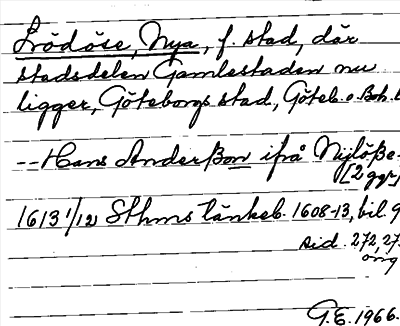 Lödöse, Nya, f. stad, där
stadsdelen Gamlestaden nu
ligger, Göteborgs stad, Göteb. o. Boh. l
-- Hans Anderßon ifrå Nylöße.
[2 ggr]
1613 1/12 Sthms tänkeb. 1608-13, bil. 9
sid. 272, 27
orig
G.E. 1966.